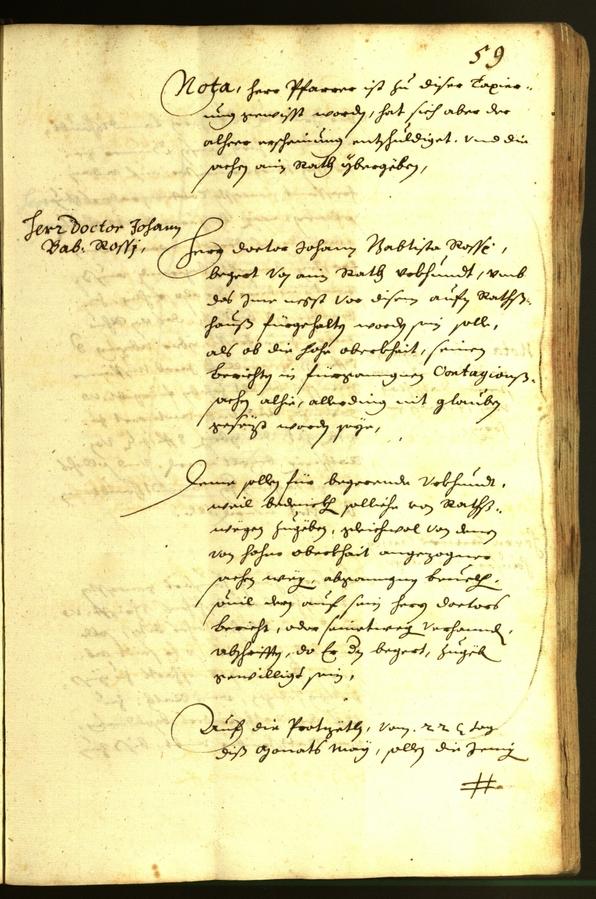 59
Nota, herr Pfarrer ist zu diser Taxier-
ung gewisst worden, hat sich aber der
alher erscheinung entschuldiget. Vnd die
sachen ain Rath ybergeben,
Herr Doctor Johann
Bab: Rossj,
Herr doctor Johann Babtista Rossj,
begert von ain Rath vrkhundt, vmb
das Ime nechst vor disem aufm Rathß-
hauß fürgehalten worden sein solle,
als ob die hohe oberkheit, seinen
berichten in fürganngnen Contagionß-
sachen alhie, allerding nit glauben
gesezt worden seye,
Deme sollen für begerende Vrkhundt,
weil bedencklich solliche von Raths-
wegen zugeben, gleichwol von denen
von hoher oberkhait angezogner
sachen weg, abganngnen beuelch,
souil deren auf sein herrn doctors
bericht, oder seinetweg verhannden,
abschrifften, do Er dz begert, zugeben
gewilligt sein,
Auf die vom 22 tag
diß Monats Maij, sollen die Jenig
#